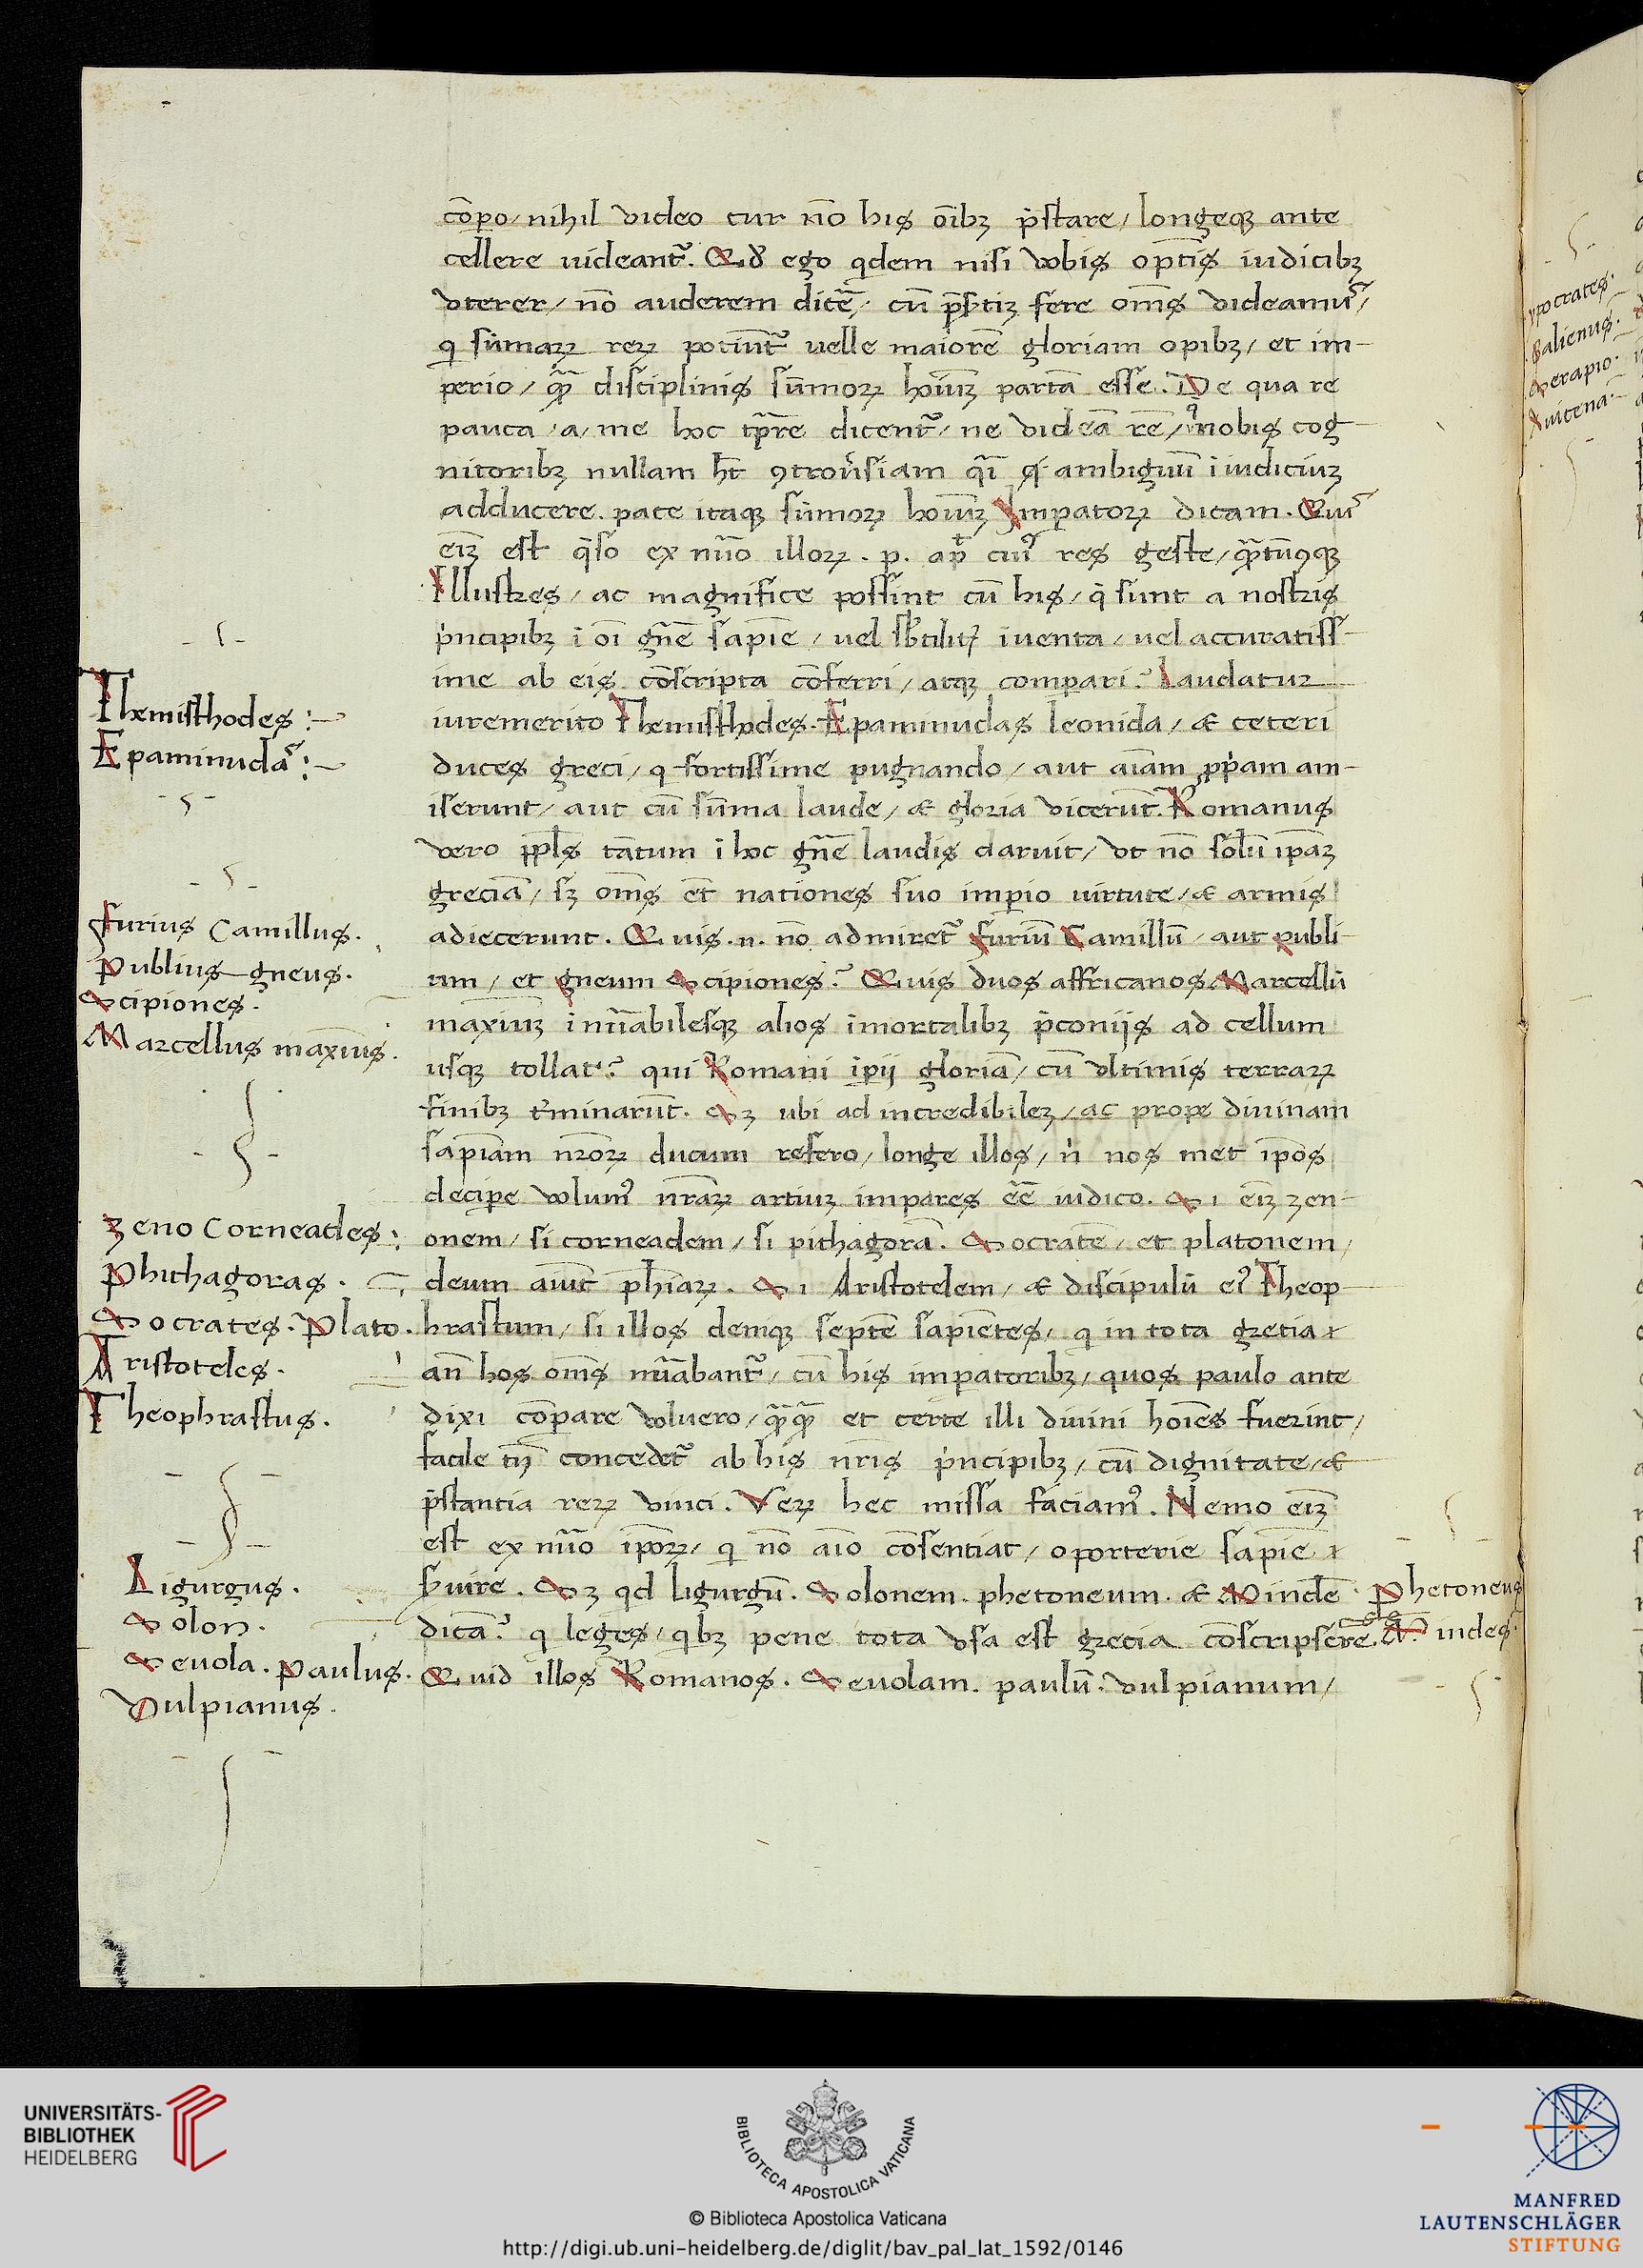 cōpo / nihil video cur nō his oībꝫ p̄stare / longeqꝫ ante
cellere uideant᷑. Qd̓ ego qdem nisi vobis optīs iudicibꝫ
vterer / nō auderem dicē / cū p̄stiꝫ fere oms̄ videamus /
q sūmaꝝ reꝝ potiunt᷑ uelle maiorē gloriam opibꝫ / et im-
perio / qͣꝫ disciplinis sūmoꝝ hoīuꝫ partā esse. De qua re
pauca / a / me hoc tp̄re dicent᷑ / ne videā rē / nobis cog
nitoribꝫ nullam hꝫ ꝯtrou̓siam qī ambiguū ī iudiciuꝫ
adducere. pace itaqꝫ sūmoꝝ hoīuꝫ Imperatoꝝ dicam. Quis
eīꝫ est q̄so ex nūo illoꝝ . p. c̄. cui᷒ res geste / qͣꝫtūꝯqꝫ
Illustres / ac magnifice possint cū his / q̄ sunt a nostris
p̓ncipibꝫ ī oī gn̄e sapīe / uel sb̓tilit᷑ īuenta / uel accuratiss-
ime ab eis cōscripta cōferri / atqꝫ comperari? Laudatur
iuremerito Themisthodes. Epaminudas leonida / & ceteri
duces greci / q fortissime pugnando / aut aīam ꝓpriam am-
iserunt / aut cū sūma laude / & gloria vicerūt. Romanus
vero pp̄ls tātum ī hoc gn̄e laudis claruit / vt nō solū ip̄aꝫ
greciā / sꝫ oms̄ et̄ nationes suo imperio uirtute / & armis
adiecerunt. Quis .n. nō admiret᷑ furiū Camillū / aut publi
um / et gneum Scipiones? Quis duos affricanos Marcellū
maxīuꝫ īnūabilesqꝫ alios īmortalibꝫ p̄conijs ad cellum
usqꝫ tollat? qui Romani īpij gloriā / cū vltimis terraꝝ
finibꝫ t̓minarūt. Sꝫ ubi ad incredibileꝫ / ac prope diuinam
sapīam nr̄oꝝ ducum refero / longe illos / n̓ nos met ip̄os
decipe volum᷒ nr̄aꝝ artiuꝫ impares eē iudico. Si eīꝫ zen-
onem / si corneadem / si pithagorā. Socratē / et platonem /
deum aiūt ph̄iaꝝ. Si Aristotelem / & discipulū e᷒ Theop-
hrastum / si illos deniqꝫ septē sapiētes / q in tota grecia
an̄ hos oms̄ nūabant᷑ / cū his imperatoribꝫ / quos paulo ante
dixi cōparare voluero / qͣꝫqͣꝫ et certe illi diuini hoīes fuerint /
facile tn̄ concedet᷑ ab his nr̄is p̓ncipibꝫ / cū dignitate / &
p̄stantia reꝝ vinci. Veꝝ hec missa faciam᷒. Nemo eīꝫ
est ex nūo ip̄oꝝ / q nō aīo cōsentiat / oporterie sapīe
s̓uire. Sꝫ qd ligurgū. Solonem. phetoneum. & Mindē
dicā? q leges / qbꝫ pene tota vsa est grecia cōscripsere.
Quid illos Romanos. Sceuolam. paulū. vulpianum /
Themisthodes :-
Epaminudas :-
furius Camillus.
Publius gneus.
Scipiones.
Marcellus maxīus.
Zeno Corneades :
Phithagoras.
Socrates. Plato.
Aristoteles.
Theophrastus.
Ligurgus.
Solon.
Sceuola. Paulus.
Vulpianus.
Phetoneus
Mindes.
ypocrates.
Galienus.
Serapio.
Auicena.
UNIVERSITÄTS-
BIBLIOTHEK
HEIDELBERG
BIBLIOTECA APOSTOLICA VATICANA
© Biblioteca Apostolica Vaticana
http://digi.ub.uni-heidelberg.de/diglit/bav_pal_lat_1592/0146
MANFRED
LAUTENSCHLÄGER
STIFTUNG